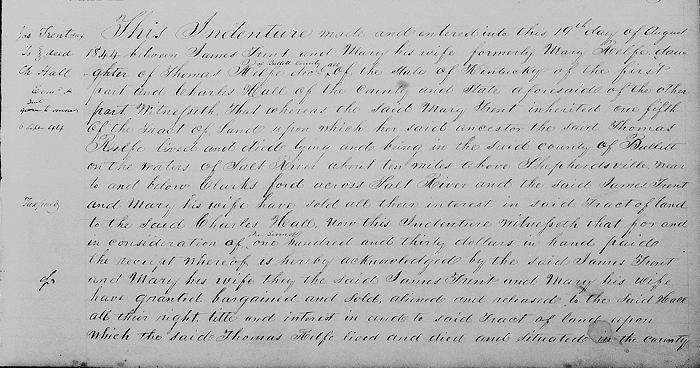 Jas Trent &ux
To } deed
Ch Hall
Exam.d &
deld
6 Sepr 444
Tax paid
This Indenture made and entered into this 19th day of August
1844 between James Trent and Mary his wife formerly Mary Helfe dau-
ghter of Thomas Helfe decd. of Bullitt County all of the State of Kentucky of the first
part and Charles Hall of the County and State aforesaid of the other
part. Witnesseth, That whereas the said Mary Trent inherited one fifth
of the tract of Land upon which her said ancestor the said Thomas
Helfe lived and died lying and being in the said county of Bullitt
on the waters of Salt River about ten miles above Shepherdsville near
to and below Clarks ford across Salt River and the said James Trent
and Mary his wife have sold all their interest in said Tract of land
to the said Charles Hall. Now this Indenture Witnesseth that for and
in consideration of the Sum of one hundred and thirty dollars in hand paid
the receipt whereof is hereby acknowledged by the said James Trent
and Mary his wife they the said James Trent and Mary his wife
have granted bargained and sold, aliened and released to the said Hall
all their right, title and interest in and to said Tract of land upon
which the said Thomas Helfe lived and died and situated in the county